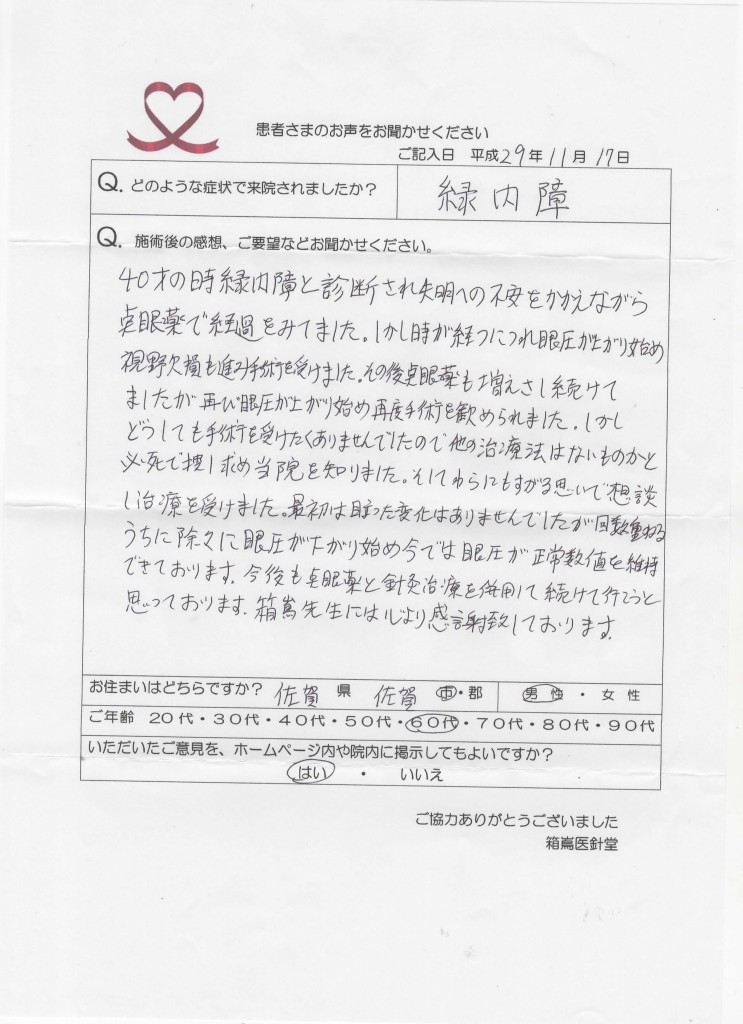 患者さまのお声をお聞かせください
ご記入日 平成29年11月17日
Q. どのような症状で来院されましたか？ 緑内障
Q. 施術後の感想、ご要望などお聞かせください。
40才の時緑内障と診断され失明への不安をかかえながら
点眼薬で経過をみてました。しかし時が経つにつれ眼圧が上がり始め
視野欠損も進み手術を受けました。その後点眼薬も増えさし続けて
ましたが再び眼圧が上がり始め再度手術を歓められました。しかし
どうしても手術を受けたくありませんでしたので他の治療法はないものかと
必死で捜し求め当院を知りました。そしてわらにもすがる思いで想談
し治療を受けました。最初は目立った変化はありませんでしたが回数重ねる
うちに除々に眼圧が下がり始め今では眼圧が正常数値を維持
できております。今後も点眼薬と針灸治療を併用して続けて行こうと
思っております。箱嶌先生には心より感謝致しております。
お住まいはどちらですか？ 佐賀 県 佐賀 市・郡 男性・女性
ご年齢 20代・30代・40代・50代・60代・70代・80代・90代
いただいたご意見を、ホームページ内や院内に掲示してもよいですか？
はい ・ いいえ
ご協力ありがとうございました
箱嶌医針堂